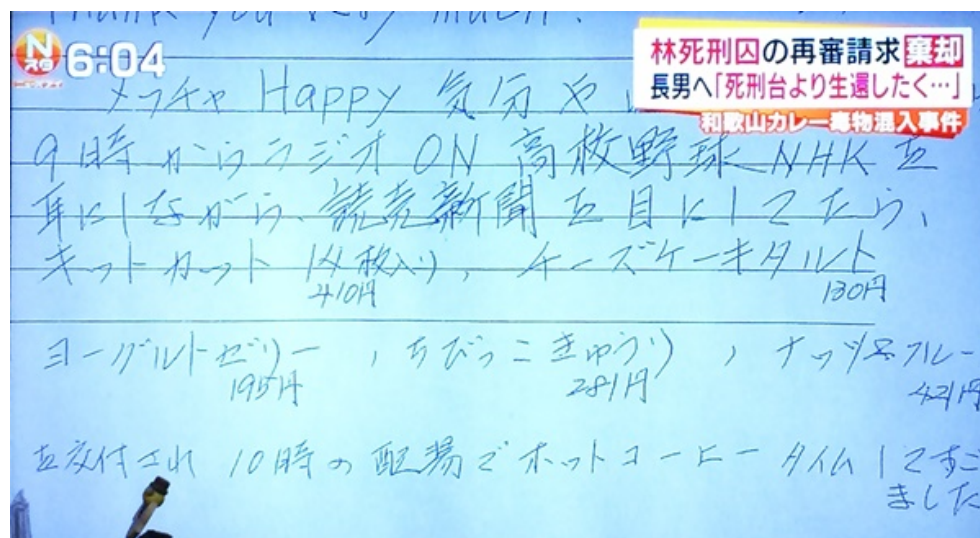 Thank you very much!
Nスタ 6:04
林死刑囚の再審請求棄却
長男へ「死刑台より生還したく…」
和歌山カレー毒物混入事件
メッチャ Happy 気分や
9時からラジオON 高校野球NHKを
耳にしながら、読売新聞を目にしてたら、
キットカット 14枚入り, チーズケーキタルト
410円 130円
ヨーグルトゼリー , ちびっこきゅうり , ナッツ&フルー
195円 281円 421円
を交付され 10時の配湯でホットコーヒー タイムしてすご
ました